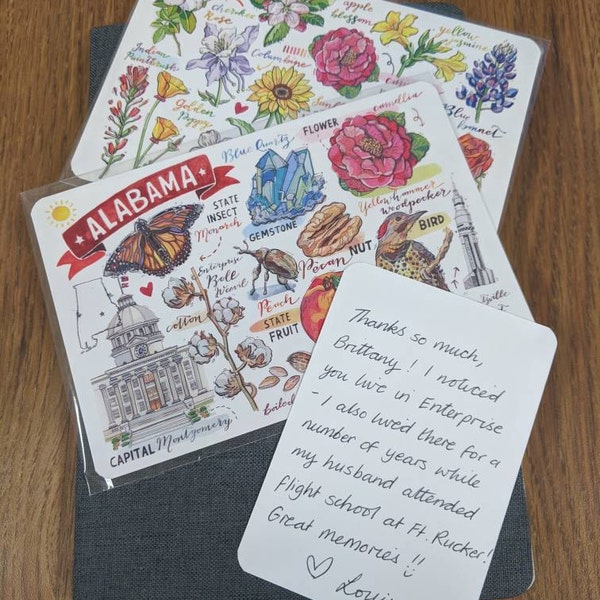 cherokee
Rose
apple
blossom
yellow
jasmine
Indian
Paintbrush
Columbine
Golden
Poppy
Blue
bonnet
ALABAMA
STATE
INSECT
Monarch
Blue Quartz
GEMSTONE
FLOWER
camellia
Yellowhammer
woodpecker
BIRD
Enterprise
Boll
Weevil
Pecan NUT
cotton
Peach
STATE
FRUIT
CAPITAL Montgomery
Thanks so much,
Brittany! I noticed
you live in Enterprise
- I also lived there for a
number of years while
my husband attended
flight school at Ft. Rucker!
Great memories!!